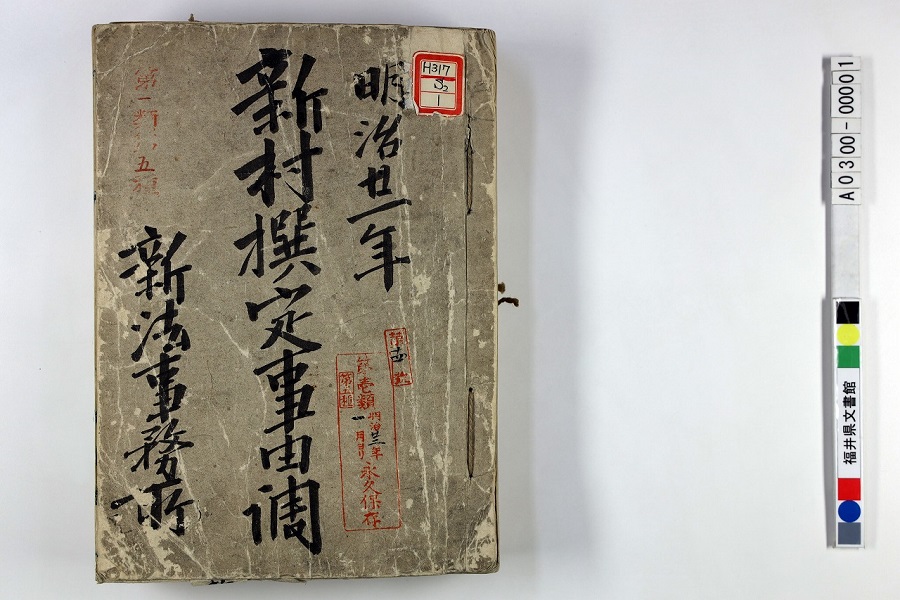 明治廿一年
新村撰定事由調
新法事務所
H317
S2
1
第壱類
第五種
明治廿三年
一月ヨリ
永久保存
A0300-00001
福井県文書館